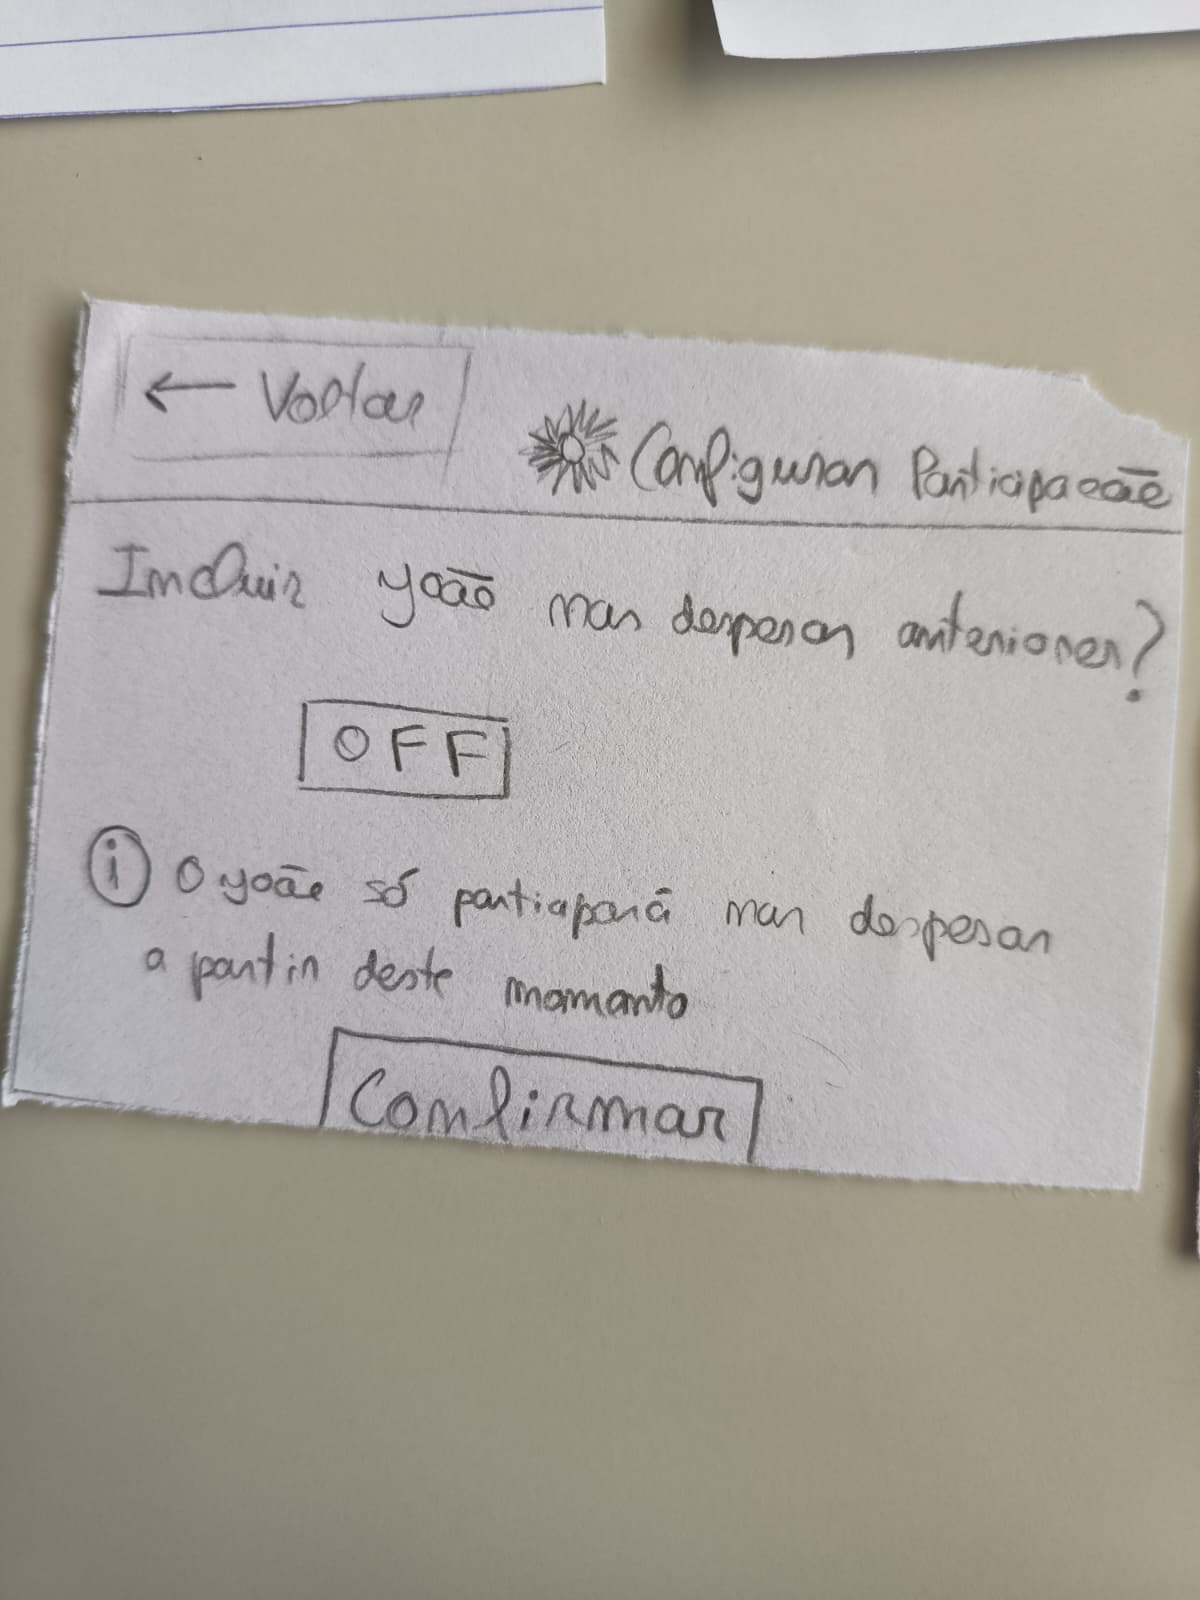 ← Voltar
Configurar Participação
Incluir João nas despesas anteriores?
OFF
i O João só participará nas despesas
a partir deste momento
Confirmar